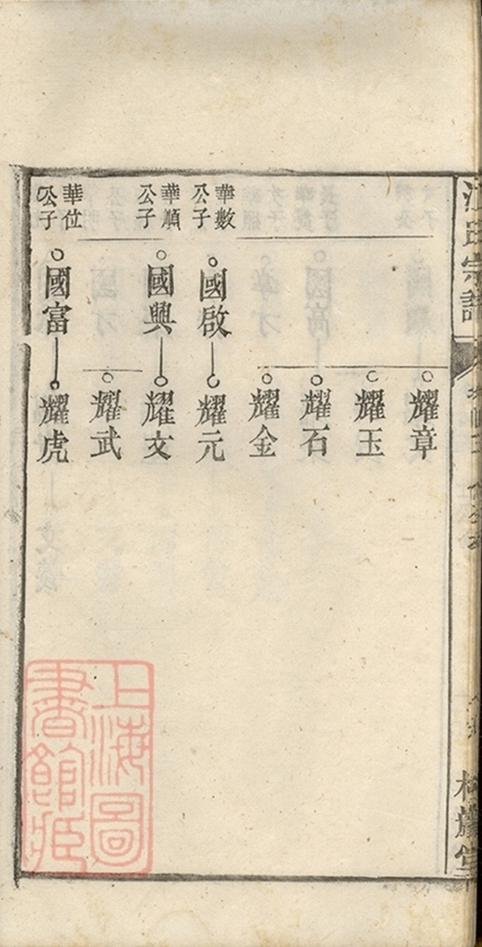 耀章
耀玉
耀石
耀金
華數公子
國啟
耀元
華順公子
國興
耀文
耀武
華位公子
國富
耀虎
上海圖書館藏